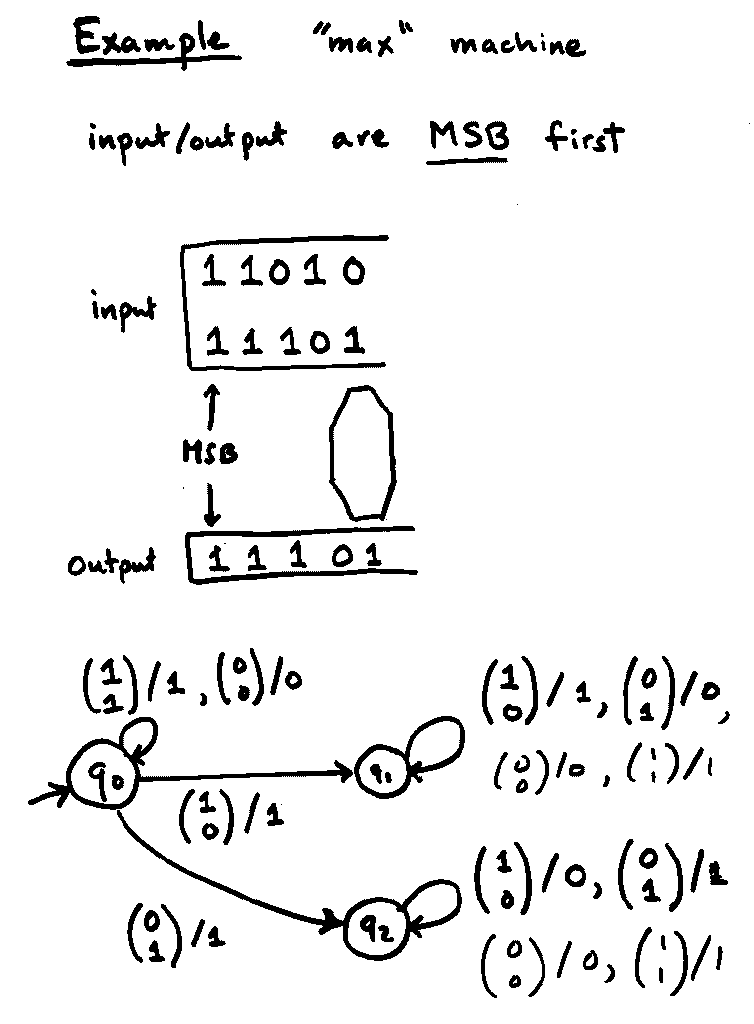 Example "max" machine
input/output are MSB first
1 1 0 1 0
input
1 1 1 0 1
MSB
output 1 1 1 0 1
(1 1)/1, (0 0)/0
(1 0)/1, (0 1)/0,
(0 0)/0, (1 1)/1
q0 q1
(1 0)/1
(1 0)/0, (0 1)/1
(0 1)/1
q2
(0 0)/0, (1 1)/1